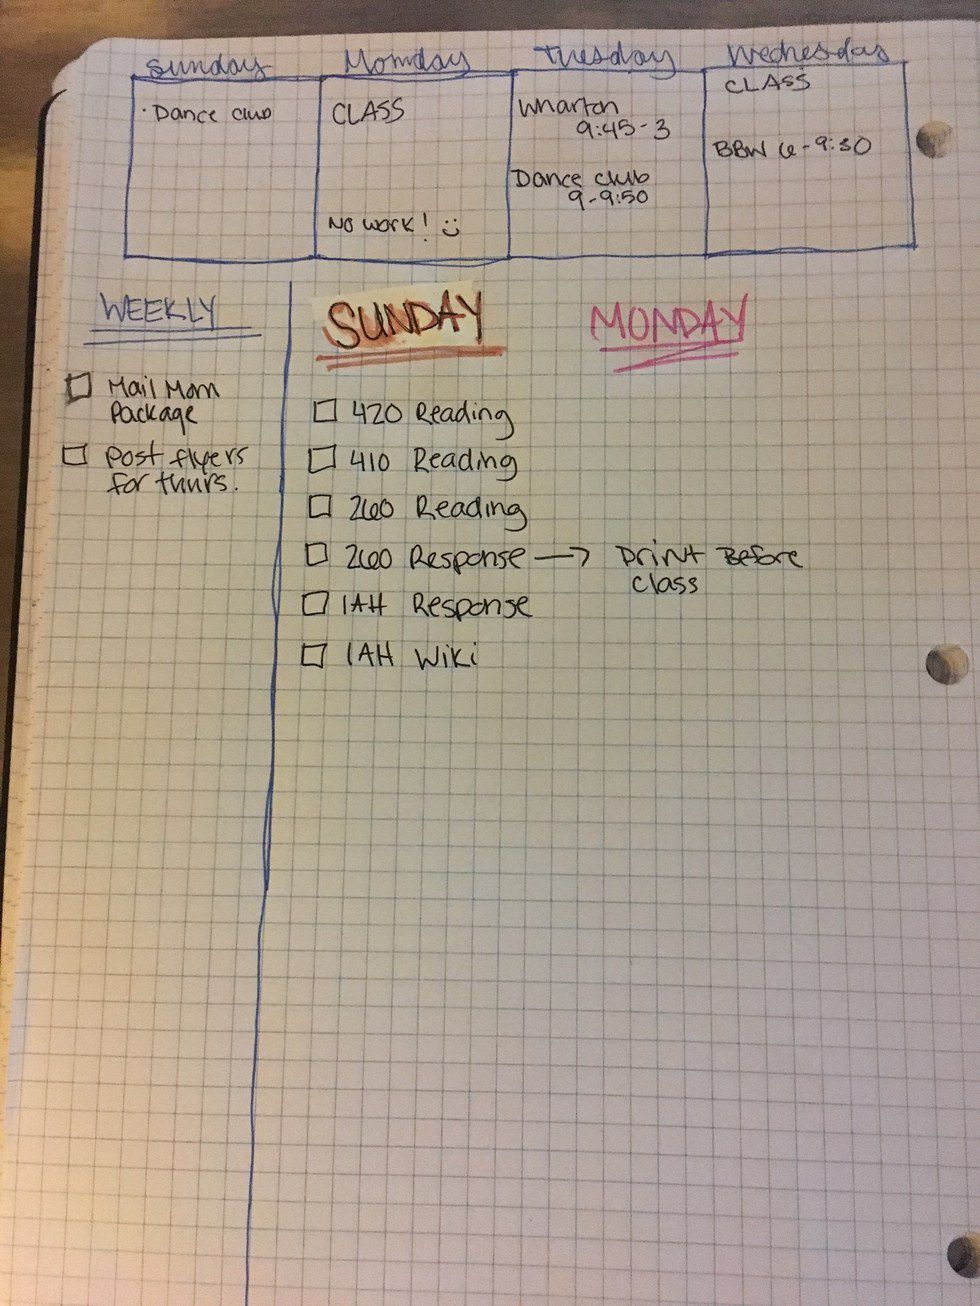 Sunday Monday Tuesday Wednesday
· Dance club
CLASS
No work! :)
Wharton
9:45-3
Dance club
9-9:50
CLASS
BBW 6-9:30
WEEKLY
Mail Mom
Package
Post flyers
for thurs.
SUNDAY
420 Reading
410 Reading
260 Reading
260 Response → Print Before
class
IAH Response
IAH Wiki
MONDAY